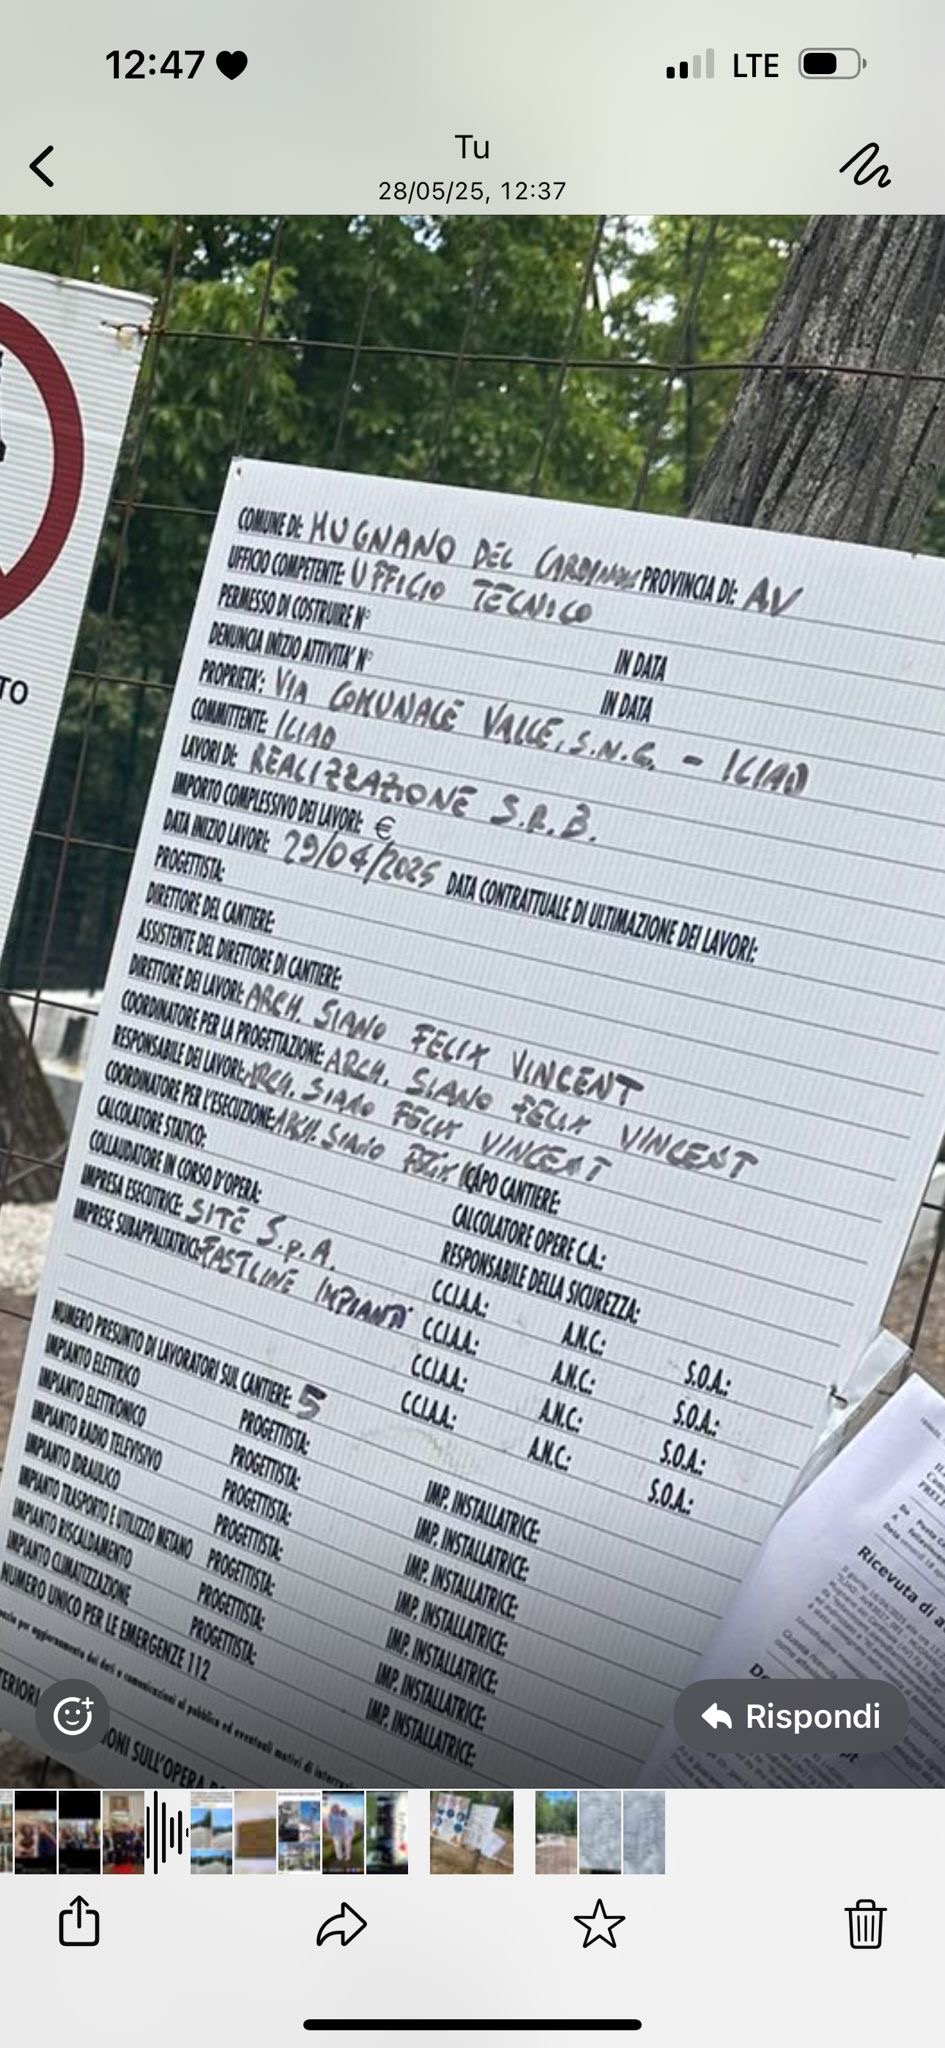 12:47
LTE
Tu
28/05/25, 12:37
TO
COMUNE DI: MUGNANO DEL CARDINALE PROVINCIA DI: AV
UFFICIO COMPETENTE: UFFICIO TECNICO
PERMESSO DI COSTRUIRE N° IN DATA
DENUNCIA INIZIO ATTIVITA' N° IN DATA
PROPRIETA': VIA COMUNALE VALLE, S.N.C. - ILIAD
COMMITTENTE: ILIAD
LAVORI DI: REALIZZAZIONE S.R.B.
IMPORTO COMPLESSIVO DEI LAVORI: €
DATA INIZIO LAVORI: 29/04/2025 DATA CONTRATTUALE DI ULTIMAZIONE DEI LAVORI:
PROGETTISTA:
DIRETTORE DEL CANTIERE:
ASSISTENTE DEL DIRETTORE DI CANTIERE:
DIRETTORE DEI LAVORI: ARCH. SIANO FELIX VINCENT
COORDINATORE PER LA PROGETTAZIONE: ARCH. SIANO FELIX VINCENT
RESPONSABILE DEI LAVORI: ARCH. SIANO FELIX VINCENT
COORDINATORE PER L'ESECUZIONE: ARCH. SIANO FELIX CAPO CANTIERE:
CALCOLATORE STATICO: CALCOLATORE OPERE C.A.:
COLLAUDATORE IN CORSO D'OPERA: RESPONSABILE DELLA SICUREZZA:
IMPRESA ESECUTRICE: SITE S.p.A. C.C.I.A.A.: A.N.C.: S.O.A.:
IMPRESE SUBAPPALTATRICI: FASTLINE IMPIANTI C.C.I.A.A.: A.N.C.: S.O.A.:
C.C.I.A.A.: A.N.C.: S.O.A.:
C.C.I.A.A.: A.N.C.: S.O.A.:
NUMERO PRESUNTO DI LAVORATORI SUL CANTIERE: 5
IMPIANTO ELETTRICO PROGETTISTA: IMP. INSTALLATRICE:
IMPIANTO ELETTRONICO PROGETTISTA: IMP. INSTALLATRICE:
IMPIANTO RADIO TELEVISIVO PROGETTISTA: IMP. INSTALLATRICE:
IMPIANTO IDRAULICO PROGETTISTA: IMP. INSTALLATRICE:
IMPIANTO TRASPORTO E UTILIZZO METANO PROGETTISTA: IMP. INSTALLATRICE:
IMPIANTO RISCALDAMENTO PROGETTISTA: IMP. INSTALLATRICE:
IMPIANTO CLIMATIZZAZIONE PROGETTISTA: IMP. INSTALLATRICE:
NUMERO UNICO PER LE EMERGENZE 112
per aggiornamento dei dati o comunicazioni al pubblico ed eventuali motivi di
IONI SULL'OPERA
Ricevuta di
Rispondi